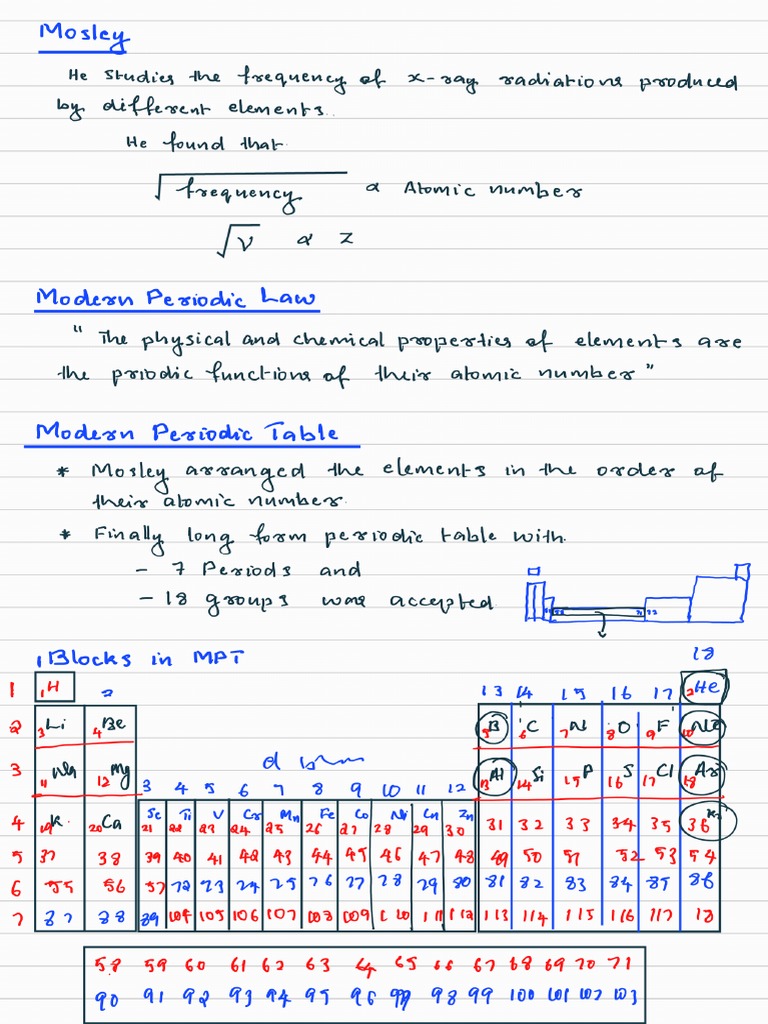 Mosley
He studies the frequency of x-ray radiations produced
by different elements.
He found that
√frequency ∝ Atomic number
√ν ∝ Z
Modern Periodic Law
" The physical and chemical properties of elements are
the priodic functions of their atomic number"
Modern Periodic Table
* Mosley arranged the elements in the order of
their atomic number.
* Finally long form periodic table with
- 7 Periods and
- 18 groups was accepted
Blocks in MPT
18
1 1H 2 13 14 15 16 17 2He
2 3Li 4Be 5B 6C 7N 8O 9F 10Ne
3 11Na 12Mg d block 13Al 14Si 15P 16S 17Cl 18Ar
3 4 5 6 7 8 9 10 11 12
4 19K 20Ca Sc 21 Ti 22 V 23 Cr 24 Mn 25 Fe 26 Co 27 Ni 28 Cu 29 Zn 30 31 32 33 34 35 36 Kr
5 37 38 39 40 41 42 43 44 45 46 47 48 49 50 51 52 53 54
6 55 56 57 72 73 74 75 76 77 78 79 80 81 82 83 84 85 86
7 87 88 89 104 105 106 107 108 109 110 111 112 113 114 115 116 117 18
58 59 60 61 62 63 64 65 66 67 68 69 70 71
90 91 92 93 94 95 96 97 98 99 100 101 102 103